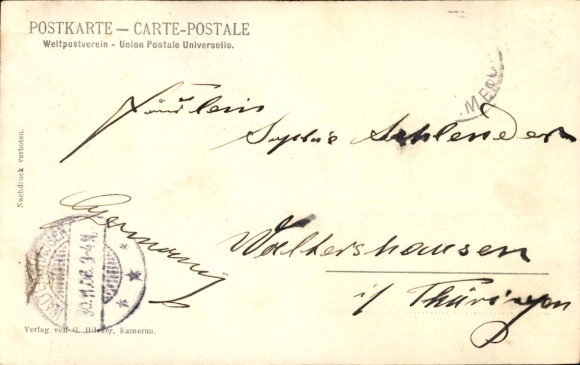 POSTKARTE — CARTE-POSTALE
Weltpostverein - Union Postale Universelle.
Fräulein
Sophie Schlender
Germany
Waltershausen
i/ Thüringen
Nachdruck verboten.
Verlag von G. Kamerun.